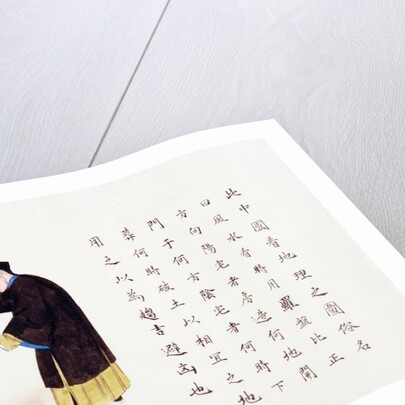 此中國看地理之圖俗名
曰風水看時用羅盤比正
方向陽宅者看邊何地開
門于何方陰宅者何時下
葬何時破土以相宜之地
用之以為趨吉避凶也